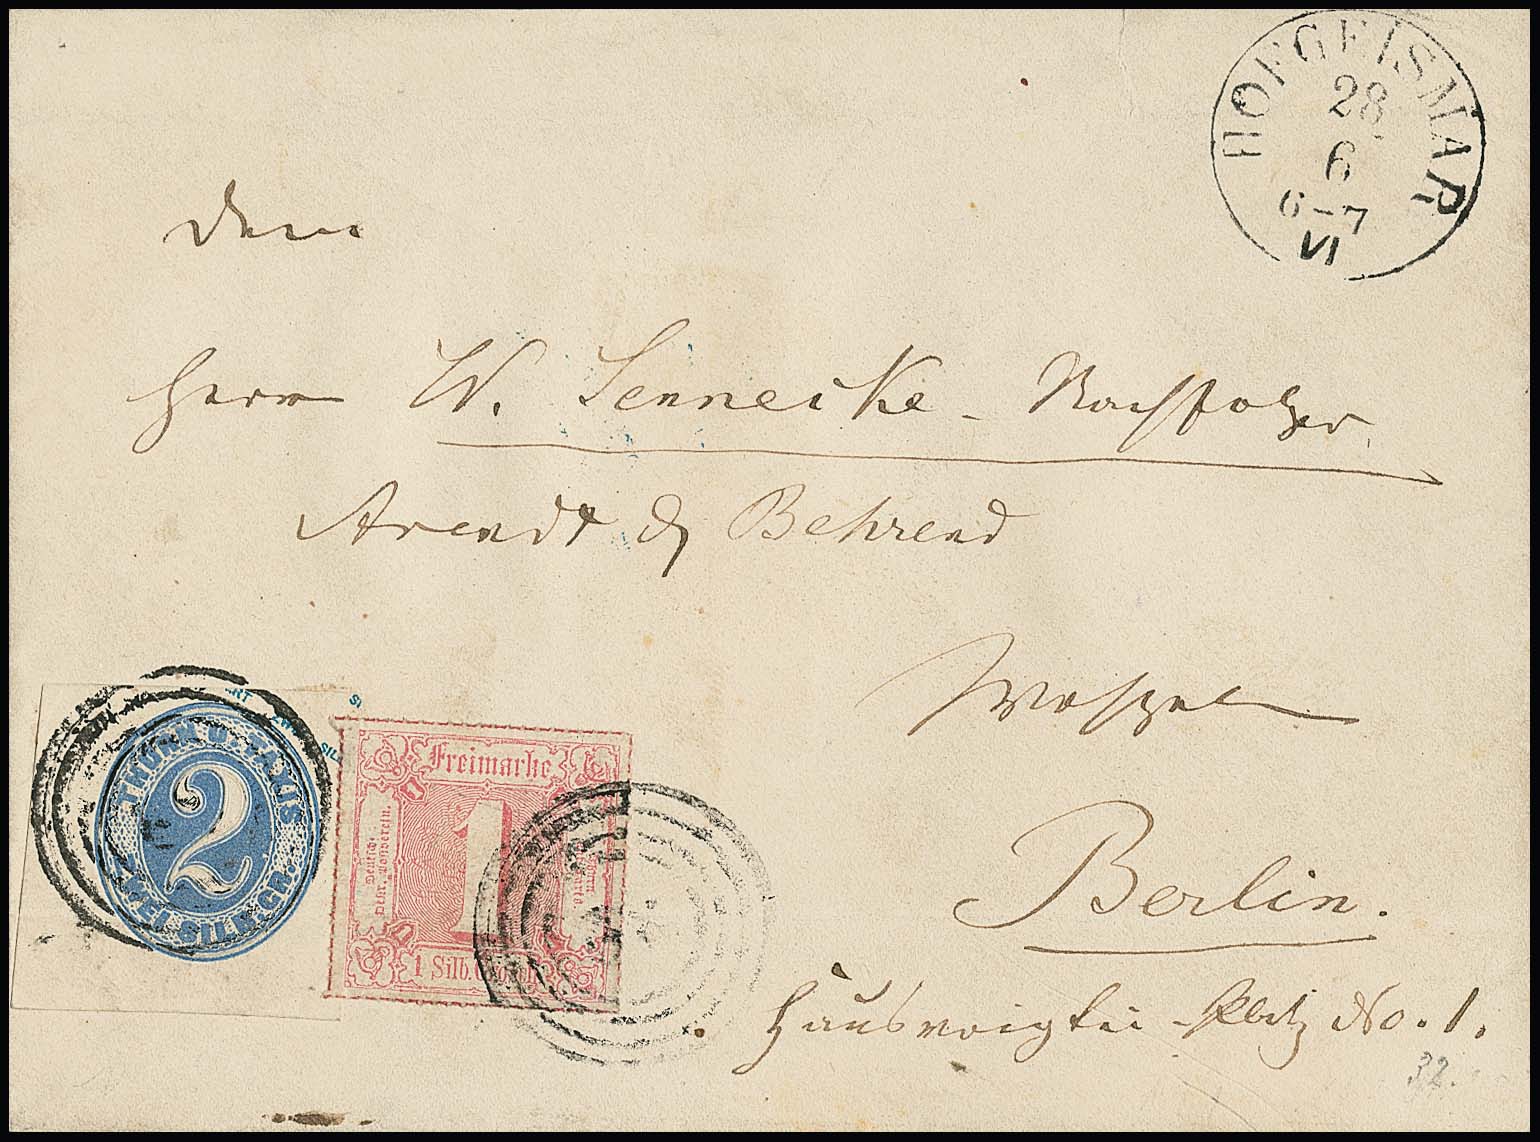 HOFGEISMAR
28
6
6-7
VI
Dem
Herrn W. Sennecke - Nachfolger
Arendt & Behrend
Berlin.
Hausvoigtei-Platz No. 1.
32.
THURN U. TAXIS
2
ZWEI SILB.GR.
Freimarke
Deutsch
Östr. Postverein.
1
Thurn
Taxis.
1 Silb. Grosch